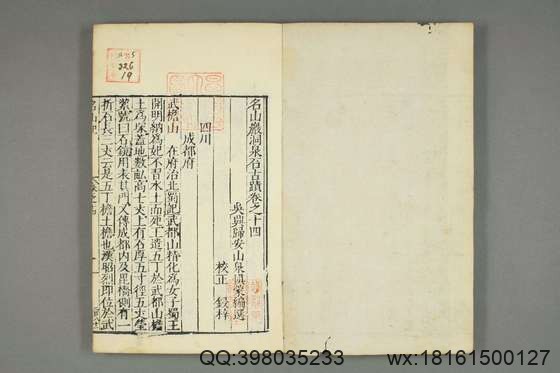 名山巖洞泉石古蹟卷之十四
吳興歸安山泉慎蒙編選
校正 鋟梓
四川
成都府
武擔山 在府治北蜀記武都山精化為女子蜀王
開明納為妃不習水土而死王遣五丁於武都山擔
土為冢蓋地數畝高七丈上有石厚五寸徑五尺瑩
澈號曰石鏡用表其門又傳成都內及毘橋側有一
折石長二丈云是五丁擔土擔也漢昭烈即位於武
226
19
QQ:398035233
wx:18161500127